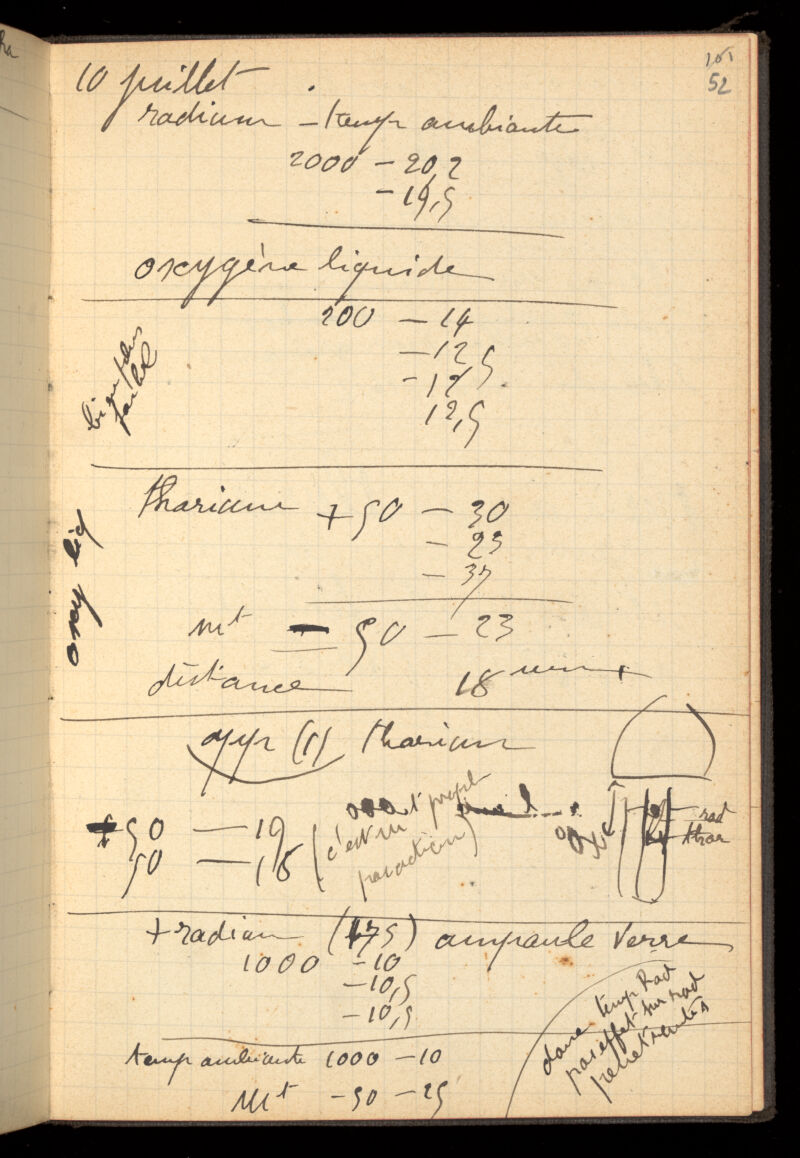 101
52
10 juillet
radium – temp ambiante
2000 – 20,2
– 19,5
oxygène liquide
200 – 14
– 12,5
– 12
12,5
bien plus
faible
thorium + 50 – 30
– 25
– 37
oxy liq
mt – 50 – 23
distance 18 mm
(1) thorium
+ 50 – 19
50 – 18
(c'est un
)
oxy
rad
thor
+ radium (175) ampoule verre
1000 – 10
– 10,5
– 10,5
donc temp Rad
pas effet sur rad
pénétrantes
temp ambiante 1000 – 10
mt – 50 – 25